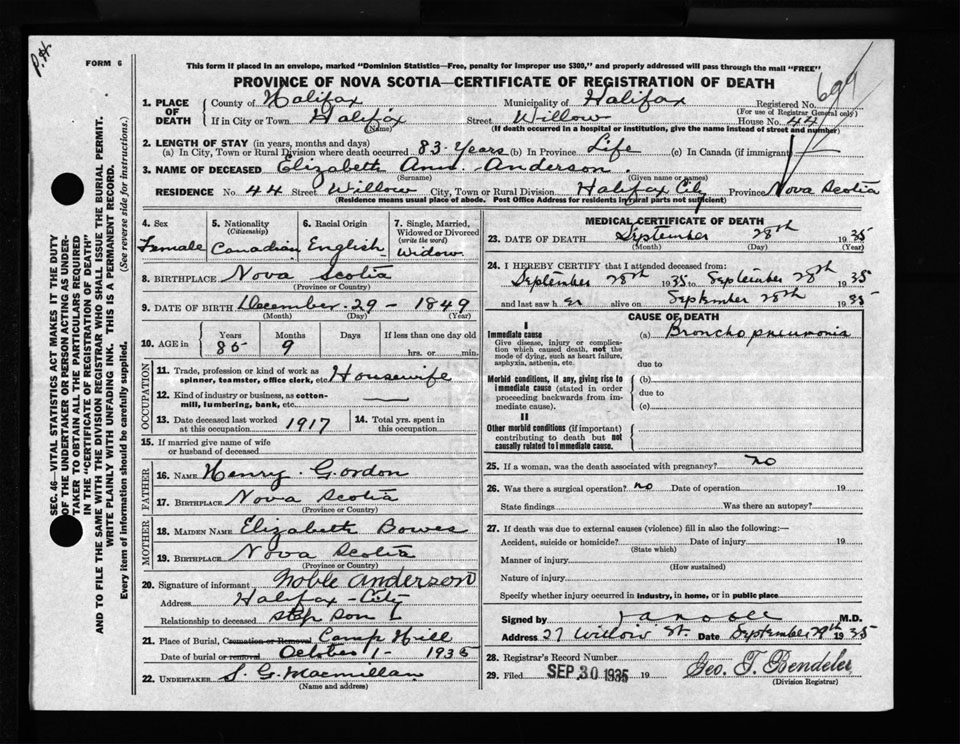 P.H.
FORM 6
This form if placed in an envelope, marked "Dominion Statistics—Free, penalty for improper use $300," and properly addressed will pass through the mail "FREE"
PROVINCE OF NOVA SCOTIA—CERTIFICATE OF REGISTRATION OF DEATH
699
1. PLACE OF DEATH County of Halifax Municipality of Halifax Registered No.
(For use of Registrar General only)
If in City or Town Halifax Street Willow House No. 44
(Name) (If death occurred in a hospital or institution, give the name instead of street and number)
2. LENGTH OF STAY (in years, months and days)
(a) In City, Town or Rural Division where death occurred 83 Years (b) In Province Life (c) In Canada (if immigrant)
3. NAME OF DECEASED Elizabeth Ann Anderson.
(Surname) (Given name or names)
RESIDENCE No. 44 Street Willow City, Town or Rural Division Halifax City Province Nova Scotia
(Residence means usual place of abode. Post Office Address for residents in rural parts not sufficient)
4. Sex Female
5. Nationality (Citizenship) Canadian
6. Racial Origin English
7. Single, Married, Widowed or Divorced (write the word) Widow
8. BIRTHPLACE Nova Scotia
(Province or Country)
9. DATE OF BIRTH December 29 – 1849
(Month) (Day) (Year)
10. AGE in Years 85 Months 9 Days If less than one day old
hrs. or min.
OCCUPATION
11. Trade, profession or kind of work as spinner, teamster, office clerk, etc. Housewife
12. Kind of industry or business, as cotton-mill, lumbering, bank, etc. —
13. Date deceased last worked at this occupation 1917
14. Total yrs. spent in this occupation
15. If married give name of wife or husband of deceased
FATHER
16. NAME Henry Gordon
17. BIRTHPLACE Nova Scotia
(Province or Country)
MOTHER
18. MAIDEN NAME Elizabeth Bowes
19. BIRTHPLACE Nova Scotia
(Province or Country)
20. Signature of informant Noble Anderson
Address Halifax – City
Relationship to deceased step son
21. Place of Burial, Cremation or Removal Camp Hill
Date of burial or removal October 1 – 1935
22. UNDERTAKER S. G. Macmillan
(Name and address)
MEDICAL CERTIFICATE OF DEATH
23. DATE OF DEATH September 28th 1935
(Month) (Day) (Year)
24. I HEREBY CERTIFY that I attended deceased from:
September 28th 1935 to September 28th 1935
and last saw her alive on September 28th 1935
CAUSE OF DEATH
I
Immediate cause (a) Broncho pneumonia
Give disease, injury or complication which caused death, not the mode of dying, such as heart failure, asphyxia, asthenia, etc.
due to
Morbid conditions, if any, giving rise to immediate cause (stated in order proceeding backwards from immediate cause).
(b)
due to
(c)
II
Other morbid conditions (if important) contributing to death but not causally related to immediate cause.
25. If a woman, was the death associated with pregnancy? no
26. Was there a surgical operation? no Date of operation 19
State findings Was there an autopsy?
27. If death was due to external causes (violence) fill in also the following:—
Accident, suicide or homicide? Date of injury 19
(State which)
Manner of injury
(How sustained)
Nature of injury
Specify whether injury occurred in industry, in home, or in public place
Signed by M.D.
Address 27 Willow St. Date September 29th 1935
28. Registrar's Record Number
29. Filed SEP 30 1935 19 Geo. T. Bendeler
(Division Registrar)
SEC. 46—VITAL STATISTICS ACT MAKES IT THE DUTY
OF THE UNDERTAKER OR PERSON ACTING AS UNDER-
TAKER TO OBTAIN ALL THE PARTICULARS REQUIRED
IN THE "CERTIFICATE OF REGISTRATION OF DEATH"
AND TO FILE THE SAME WITH THE DIVISION REGISTRAR WHO SHALL ISSUE THE BURIAL PERMIT.
WRITE PLAINLY WITH UNFADING INK. THIS IS A PERMANENT RECORD.
Every item of information should be carefully supplied. (See reverse side for instructions.)